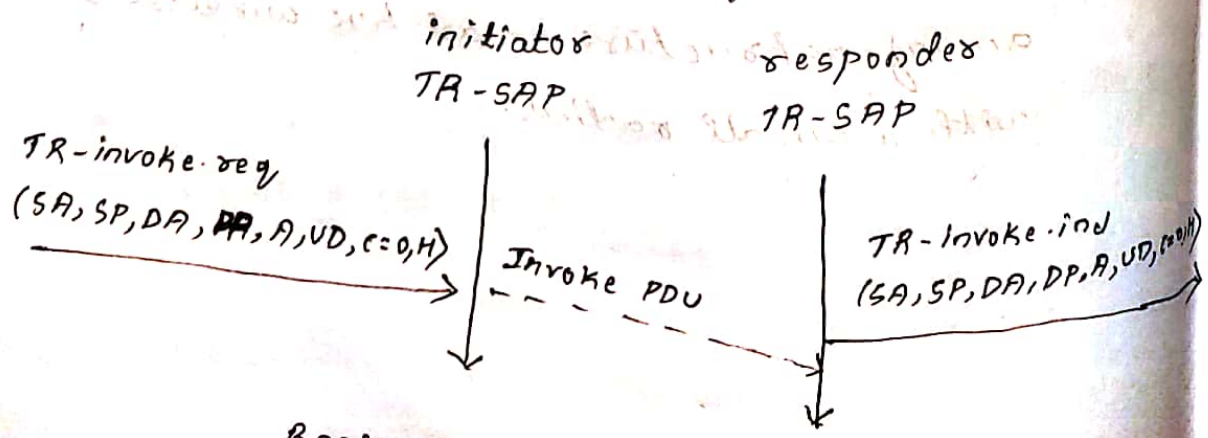 initiator
TR-SAP
responder
TR-SAP
TR-invoke.req
(SA, SP, DA, DA, A, UD, C=0, H)
Invoke PDU
TR-Invoke.ind
(SA, SP, DA, DP, A, UD, C=0, H)